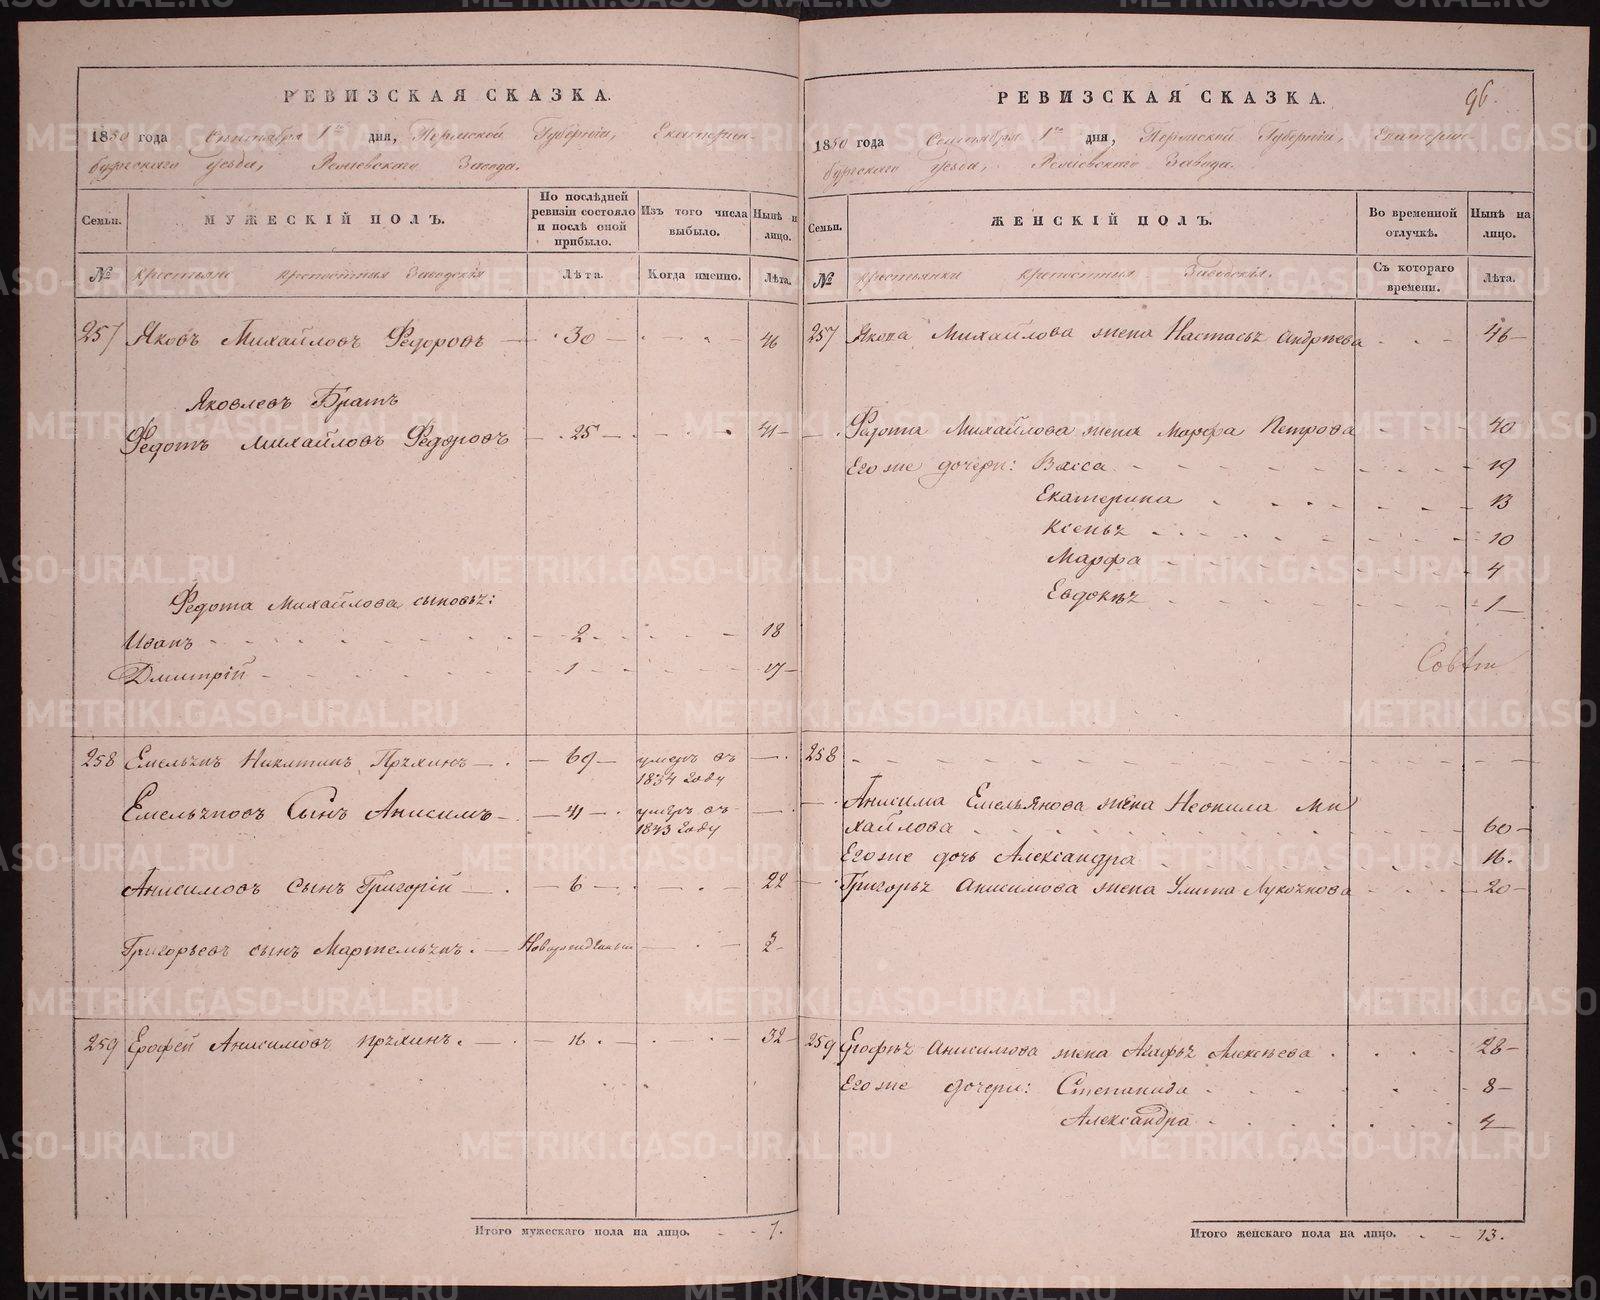 РЕВИЗСКАЯ СКАЗКА.
1850 года Сентября 1го дня, Пермской Губерніи, Екатерин-
бургскаго Уѣзда, Режевскаго Завода.
Семьи.
МУЖЕСКІЙ ПОЛЪ.
По послѣдней ревизіи состояло и послѣ оной прибыло.
Изъ того числа выбыло.
Нынѣ на лицо.
№
Крестьяне крепостныя Заводскія
Лѣта.
Когда именно.
Лѣта.
257 Яковъ Михайловъ Федоровъ — 30 — 46
Яковлевъ Братъ
Федотъ Михайловъ Федоровъ — 25 — 41
Федота Михайлова сыновья:
Иванъ 2 18
Дмитрій 1 17
258 Емельянъ Никитинъ Пряхинъ — 69 — умеръ въ 1834 году —
Емельяновъ Сынъ Анисимъ — 41 — умеръ въ 1843 году —
Анисимовъ сынъ Григорій — 6 — 22
Григорьевъ сынъ Мартемьянъ — Новорожденный — 2
259 Ерофей Анисимовъ Пряхинъ — 16 — 32
Итого мужескаго пола на лицо. 7.
96.
РЕВИЗСКАЯ СКАЗКА.
1850 года Сентября 1го дня, Пермской Губерніи, Екатерин-
бургскаго Уѣзда, Режевскаго Завода.
Семьи.
ЖЕНСКІЙ ПОЛЪ.
Во временной отлучкѣ.
Нынѣ на лицо.
№
Крестьянки крепостныя Заводскія.
Съ котораго времени.
Лѣта.
257 Якова Михайлова жена Настасья Андреева 46
Федота Михайлова жена Марфа Петрова 40
Его же дочери: Васса 19
Екатерина 13
Ксенья 10
Марфа 4
Евдокея 1
258
Анисима Емельянова жена Неонила Ми
хайлова 60
Его же дочь Александра 16.
Григорья Анисимова жена Улита Лукоянова 20
259 Ерофея Анисимова жена Агафья Алексеева 28
Его же дочери: Степанида 8
Александра 4
Итого женскаго пола на лицо. 13.
METRIKI.GASO-URAL.RU